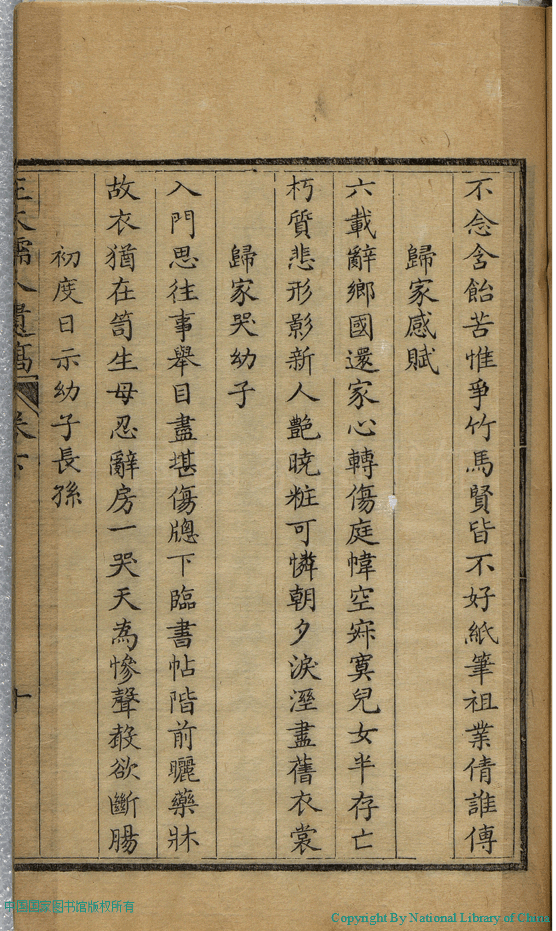 不念含飴苦惟爭竹馬賢皆不好紙筆祖業倩誰傳
歸家感賦
六載辭鄉國還家心轉傷庭幃空寂寞兒女半存亡
朽質悲形影新人艷曉粧可憐朝夕淚溼盡舊衣裳
歸家哭幼子
入門思往事舉目盡堪傷牕下臨書帖階前曬藥牀
故衣猶在笥生母忍辭房一哭天為慘聲殺欲斷腸
初度日示幼子長孫
孺人遺稿 卷下
十
中国国家图书馆版权所有
Copyright By National Library of China